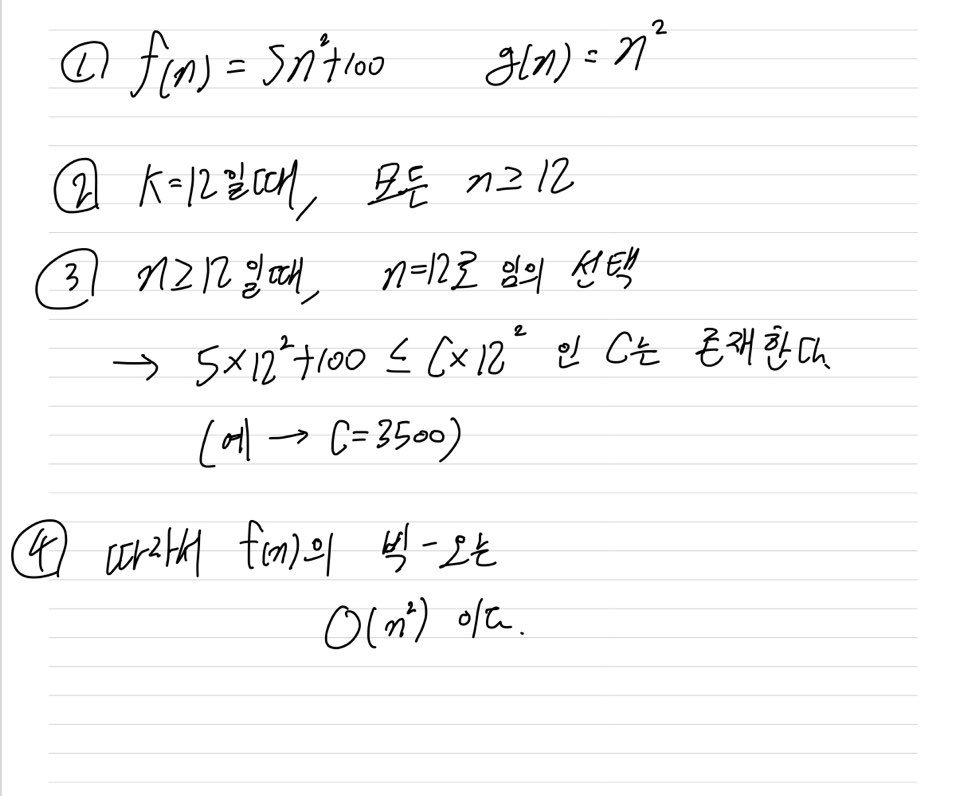 ① f(n) = 5n²+100 g(n) = n²
② K=12일때, 모든 n≥12
③ n≥12일때, n=12로 임의 선택
→ 5×12²+100 ≤ C×12² 인 C는 존재한다.
(예 → C=3500)
④ 따라서 f(n)의 빅-오는
O(n²) 이다.